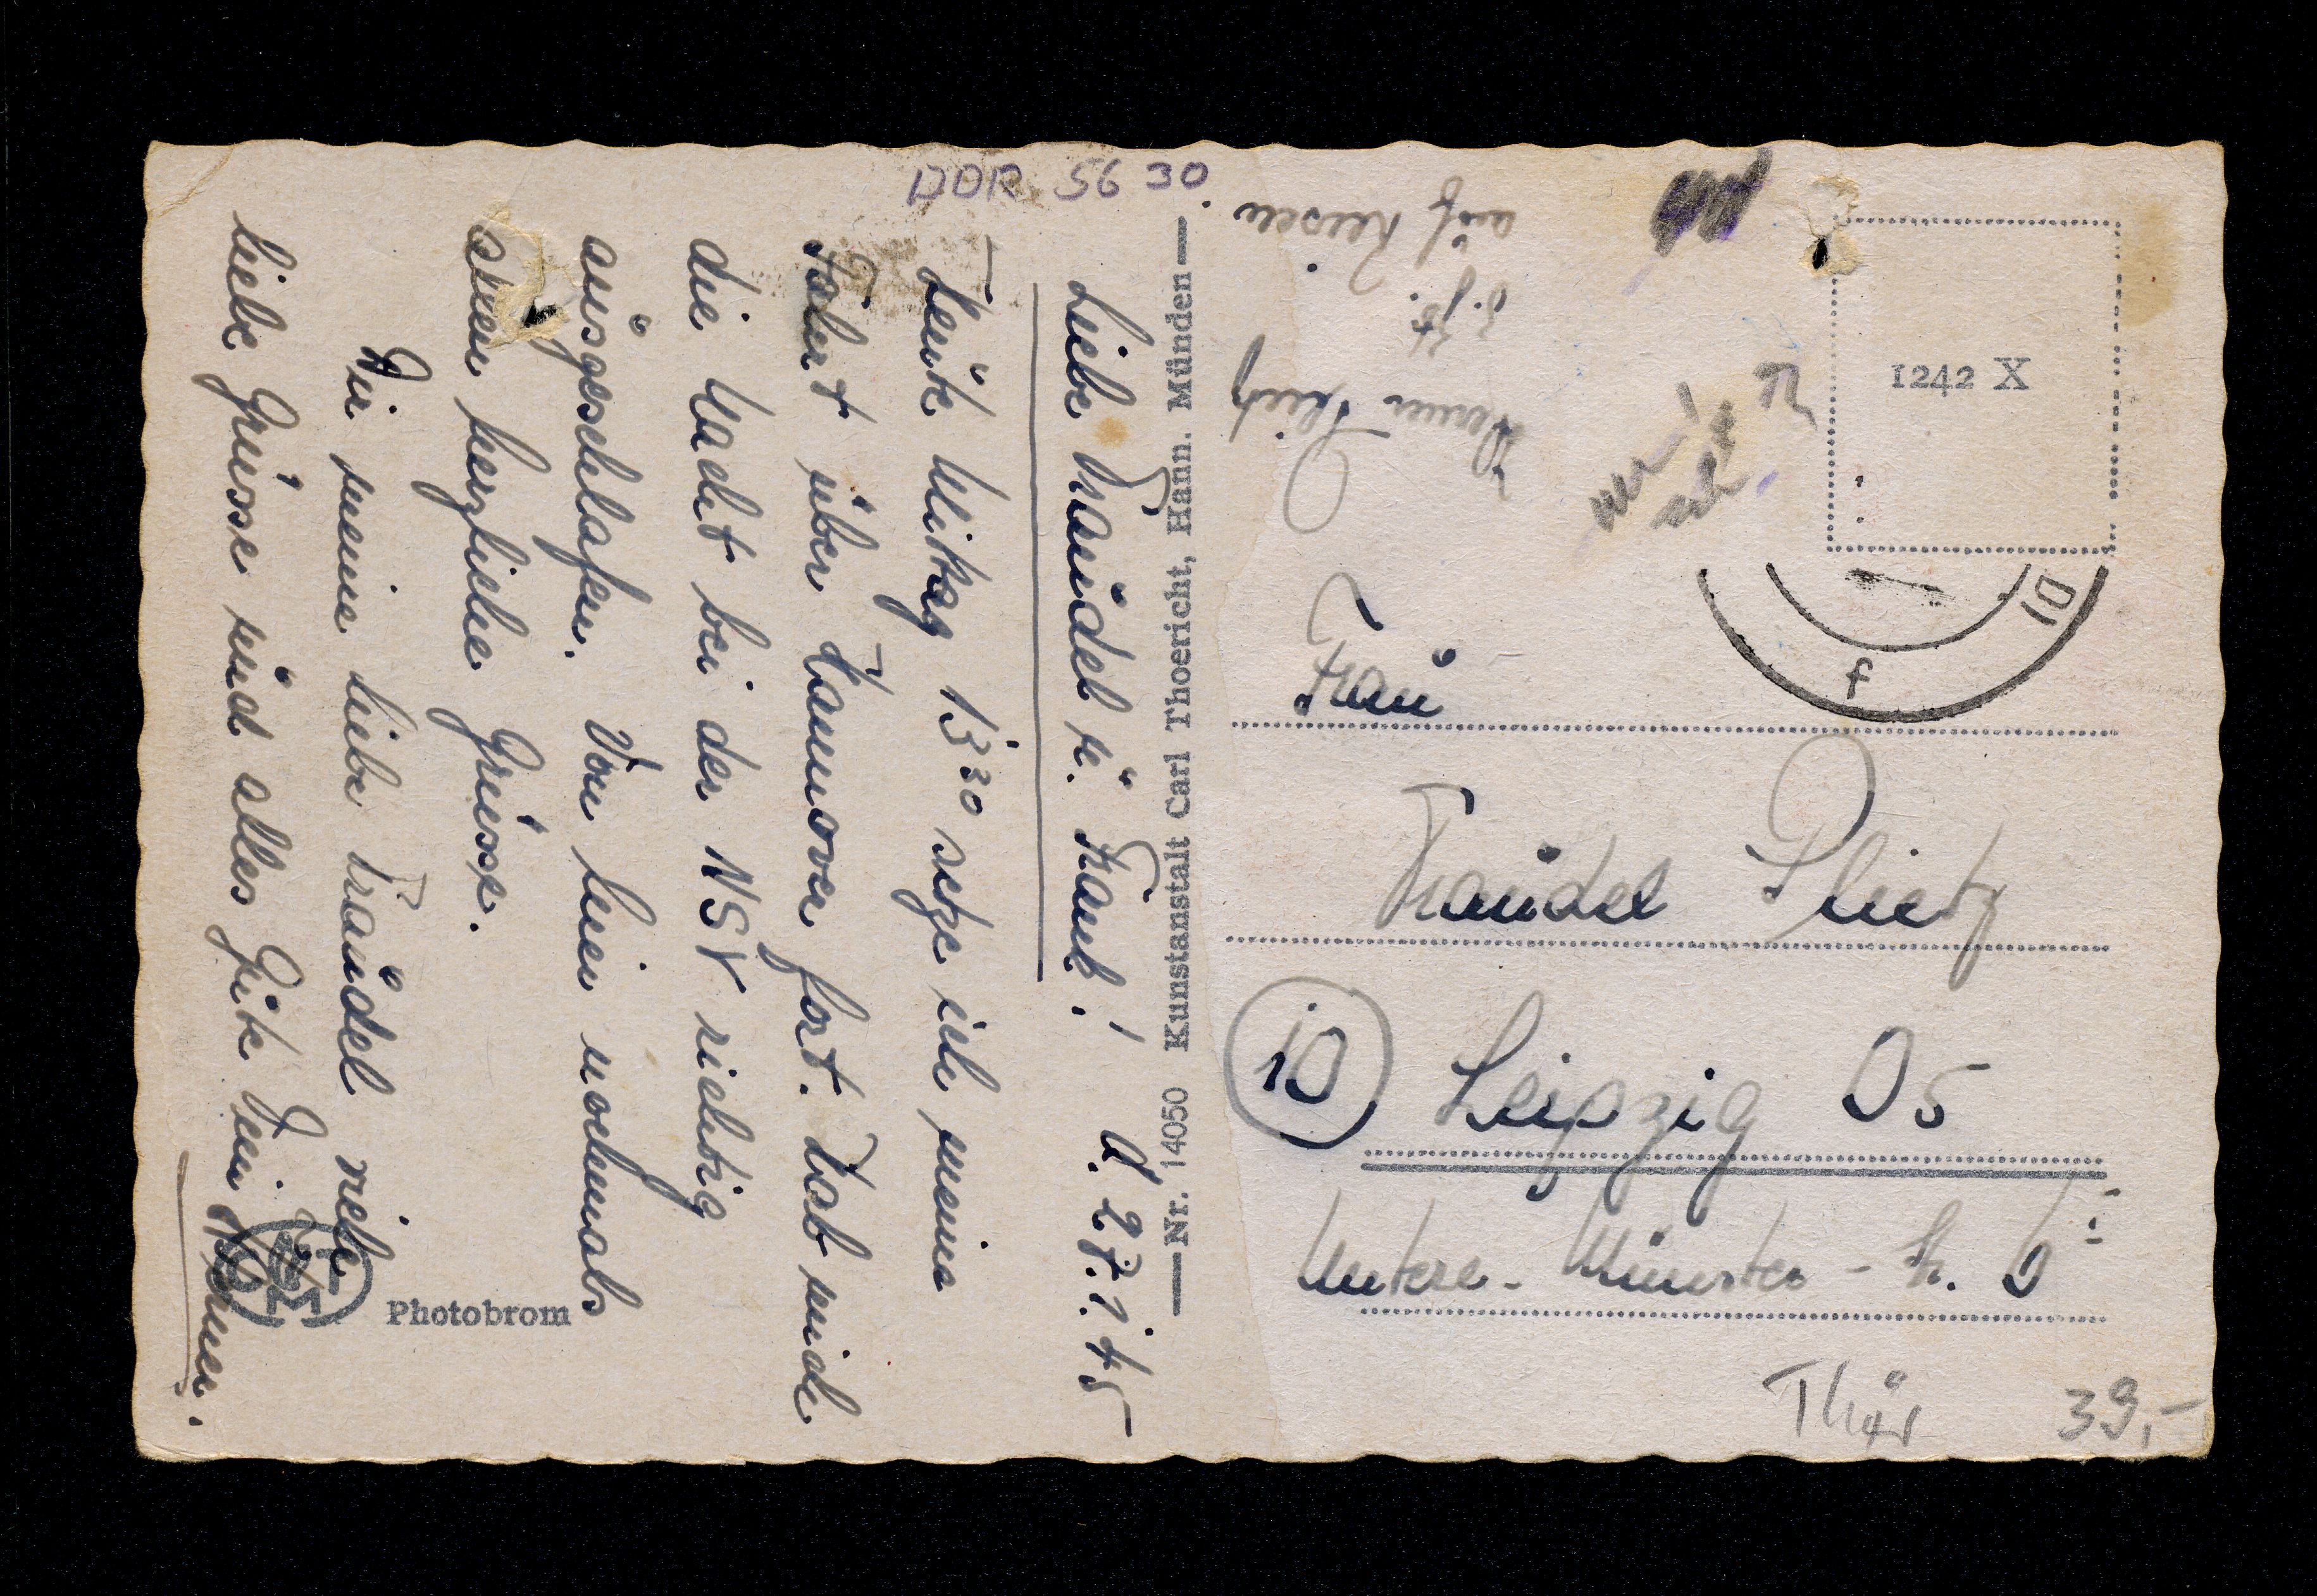 Liebe Traudel u. Frank! d. 27.1.45
Heute Mittag 13 30 setze ich meine
Fahrt über Hannover fort. Hab mich
die Nacht bei der NSV richtig
ausgeschlafen. Von hier nochmals
allen herzliche Grüsse.
Dir meine liebe Traudel viele
liebe Grüsse und alles Gute Dein Werner.
Photobrom
Nr. 14050 Kunstanstalt Carl Thoericht, Hann. Münden
DDR 56 30
Werner
z. Zt.
auf Reisen
1242 X
Frau
Traudel Plietz
10 Leipzig O5
Untere-Münster-Str.
Thür
39,-